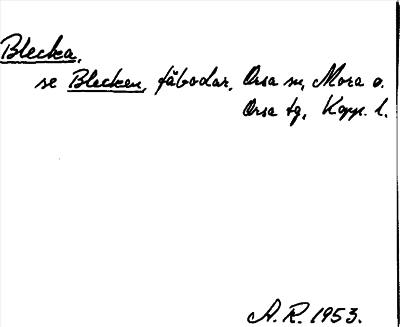 Blecka,
se Blecken, fäbodar, Orsa sn, Mora o.
Orsa tg, Kopp. l.
A. R. 1953.